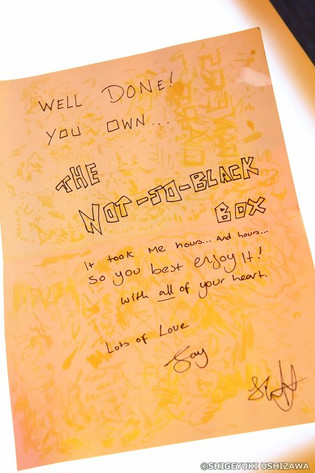 WELL DONE!
YOU OWN...
THE
NOT-SO-BLACK
BOX
it took me hours... and hours...
so you best enjoy it!
with all of your heart.
Lots of Love
©SHIGEYUKI USHIZAWA